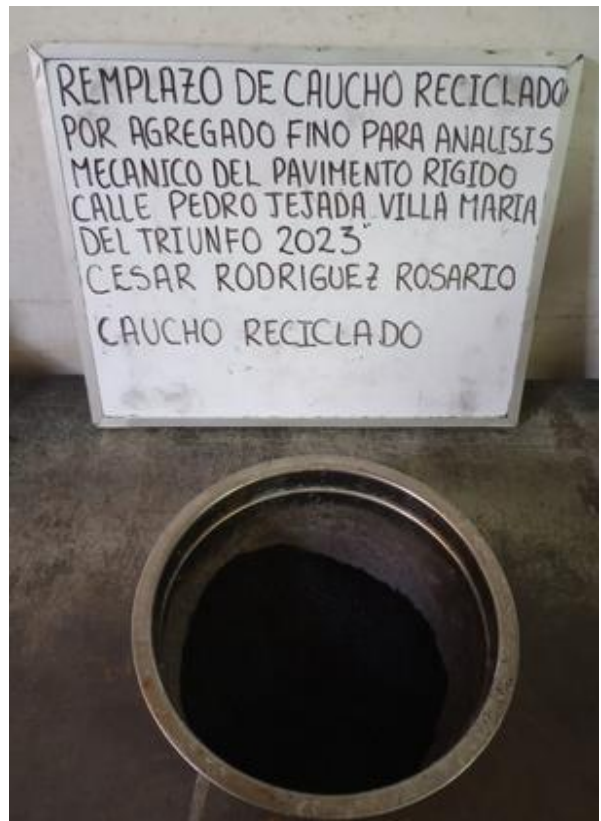 REMPLAZO DE CAUCHO RECICLADO
POR AGREGADO FINO PARA ANALISIS
MECANICO DEL PAVIMENTO RIGIDO
CALLE PEDRO TEJADA VILLA MARIA
DEL TRIUNFO 2023"
CESAR RODRIGUEZ ROSARIO
CAUCHO RECICLADO